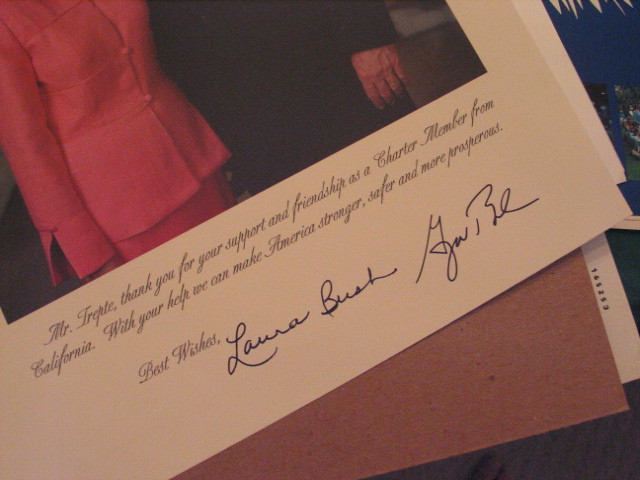 Mr. Trepte, thank you for your support and friendship as a Charter Member from
California. With your help we can make America stronger, safer and more prosperous.
Best Wishes,
Laura Bush
165253